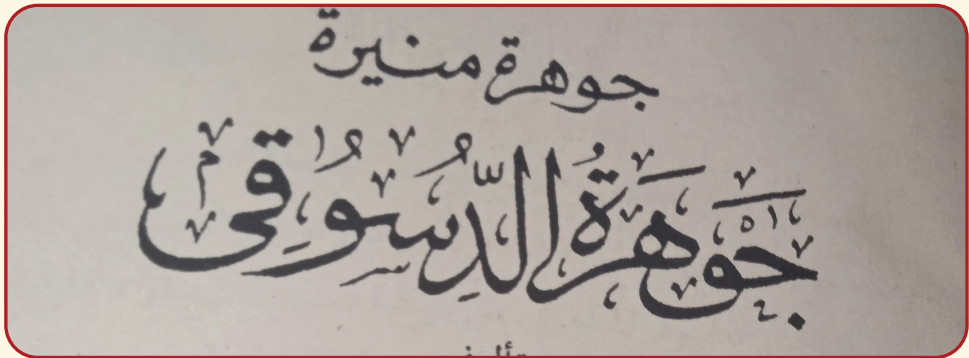 جوهرة منيرة
جَوْهَرَةُ الدِّسُوقِى